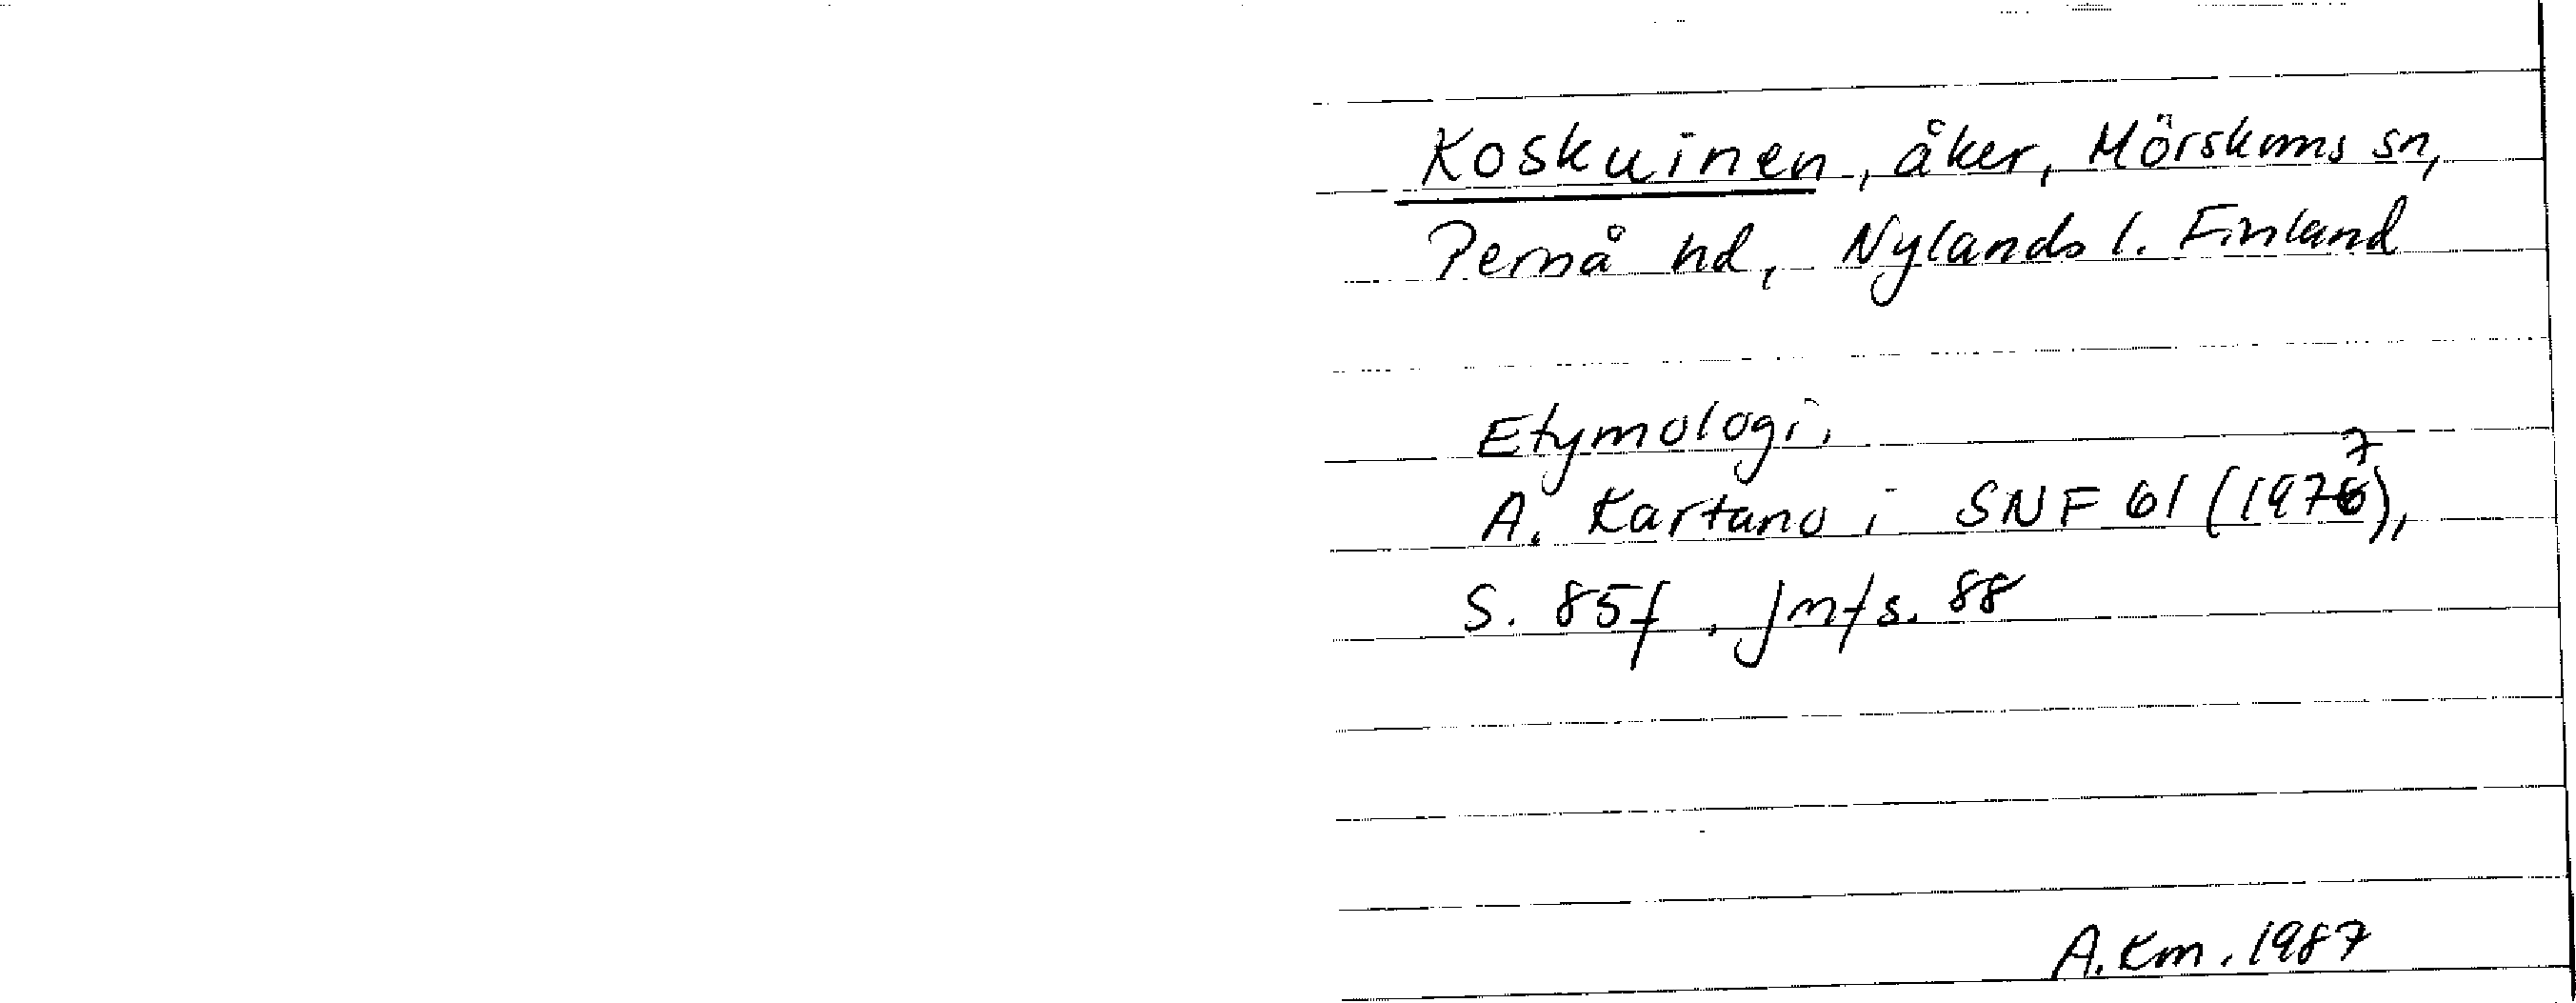 Koskuinen, åker, Mörskoms sn,
Pernå hd, Nylands l. Finland
Etymologi.
A. Kartano i SNF 61 (1977),
S. 85f, jmf s. 88
A. Km. 1987